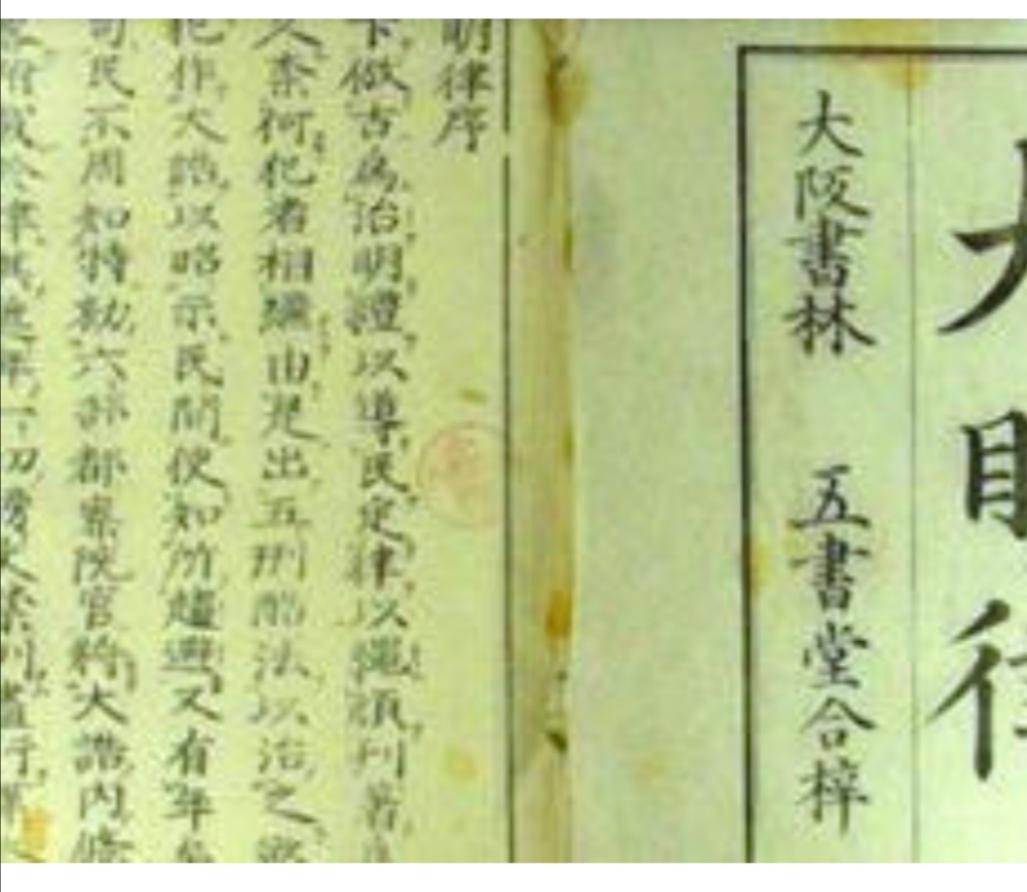 大眀律
大阪書林 五書堂合梓
明律序
下倣古爲治明禮以導民定律以繩頑刊著
人柰何犯者相繼由是出五刑酷法以治之欲
犯作大誥以昭示民間使知所趨避又有年
司民不周知特勑六部都察院官將大誥内條
附載於律其遞年一切榜文禁例盡行